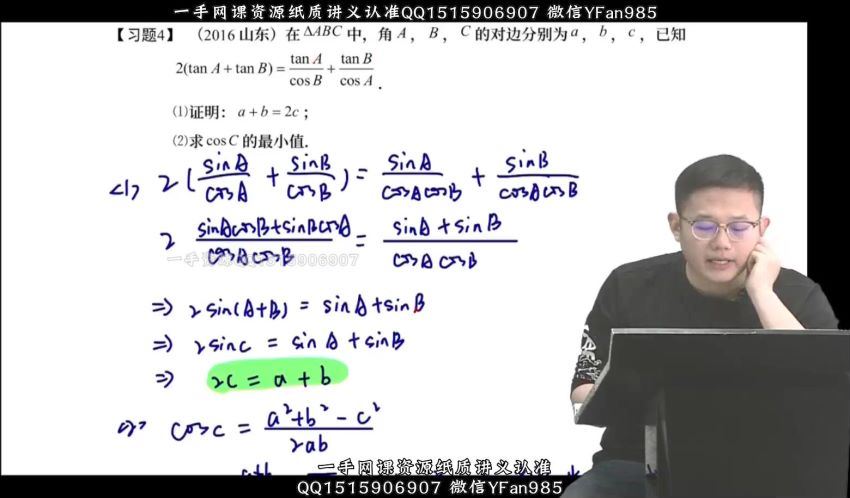 一手网课资源纸质讲义认准QQ1515906907 微信YFan985
【习题4】（2016 山东）在 ΔABC 中，角 A， B， C 的对边分别为 a， b， c，已知
2(tan A + tan B) = tan A / cos B + tan B / cos A .
(1)证明：a + b = 2c；
(2)求 cos C 的最小值.
<1> 2 ( sinA / cosA + sinB / cosB ) = sinA / cosAcosB + sinB / cosAcosB
2 sinAcosB+sinBcosA / cosAcosB = sinA + sinB / cosA cosB
一手资源QQ1515906907
⇒ 2sin(A+B) = sinA+sinB
⇒ 2sinC = sinA+sinB
⇒ 2c = a + b
<2> cosC = a²+b²-c² / 2ab
一手网课资源纸质讲义认准
QQ1515906907 微信YFan985